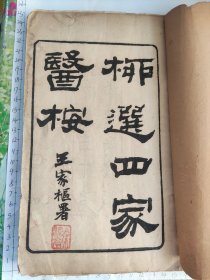 柳選四家
醫桉
王家枢署